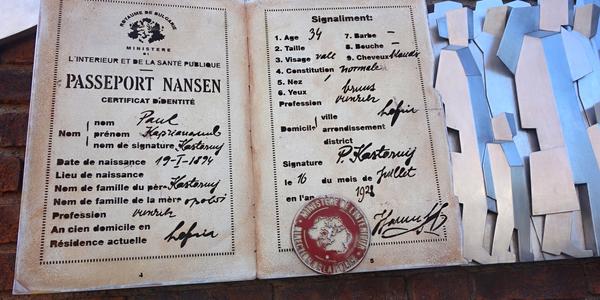 ROYAUME DE BULGARIE
MINISTERE
DE
L'INTERIEUR ET DE LA SANTÉ PUBLIQUE
PASSEPORT NANSEN
CERTIFICAT D'IDENTITÉ
Nom
nom Paul
prénom
nom de signature Kasterny
Date de naissance 19-I-1894
Lieu de naissance
Nom de famille du père Kasterny
Nom de famille de la mère
Profession
An cien domicile en
Résidence actuelle
4
Signaliment:
1. Age 34
2. Taille
3. Visage vale
4. Constitution normale
5. Nez
6. Yeux bruns
7. Barbe -
8. Bouche -
9. Cheveux
Profession
Domicile
ville
arrendissement
district
Signature P. Kasterny
le 16 du mois de Juillet
en l'an 1928
MINISTÈRE DE L'INTÉRIEUR
5